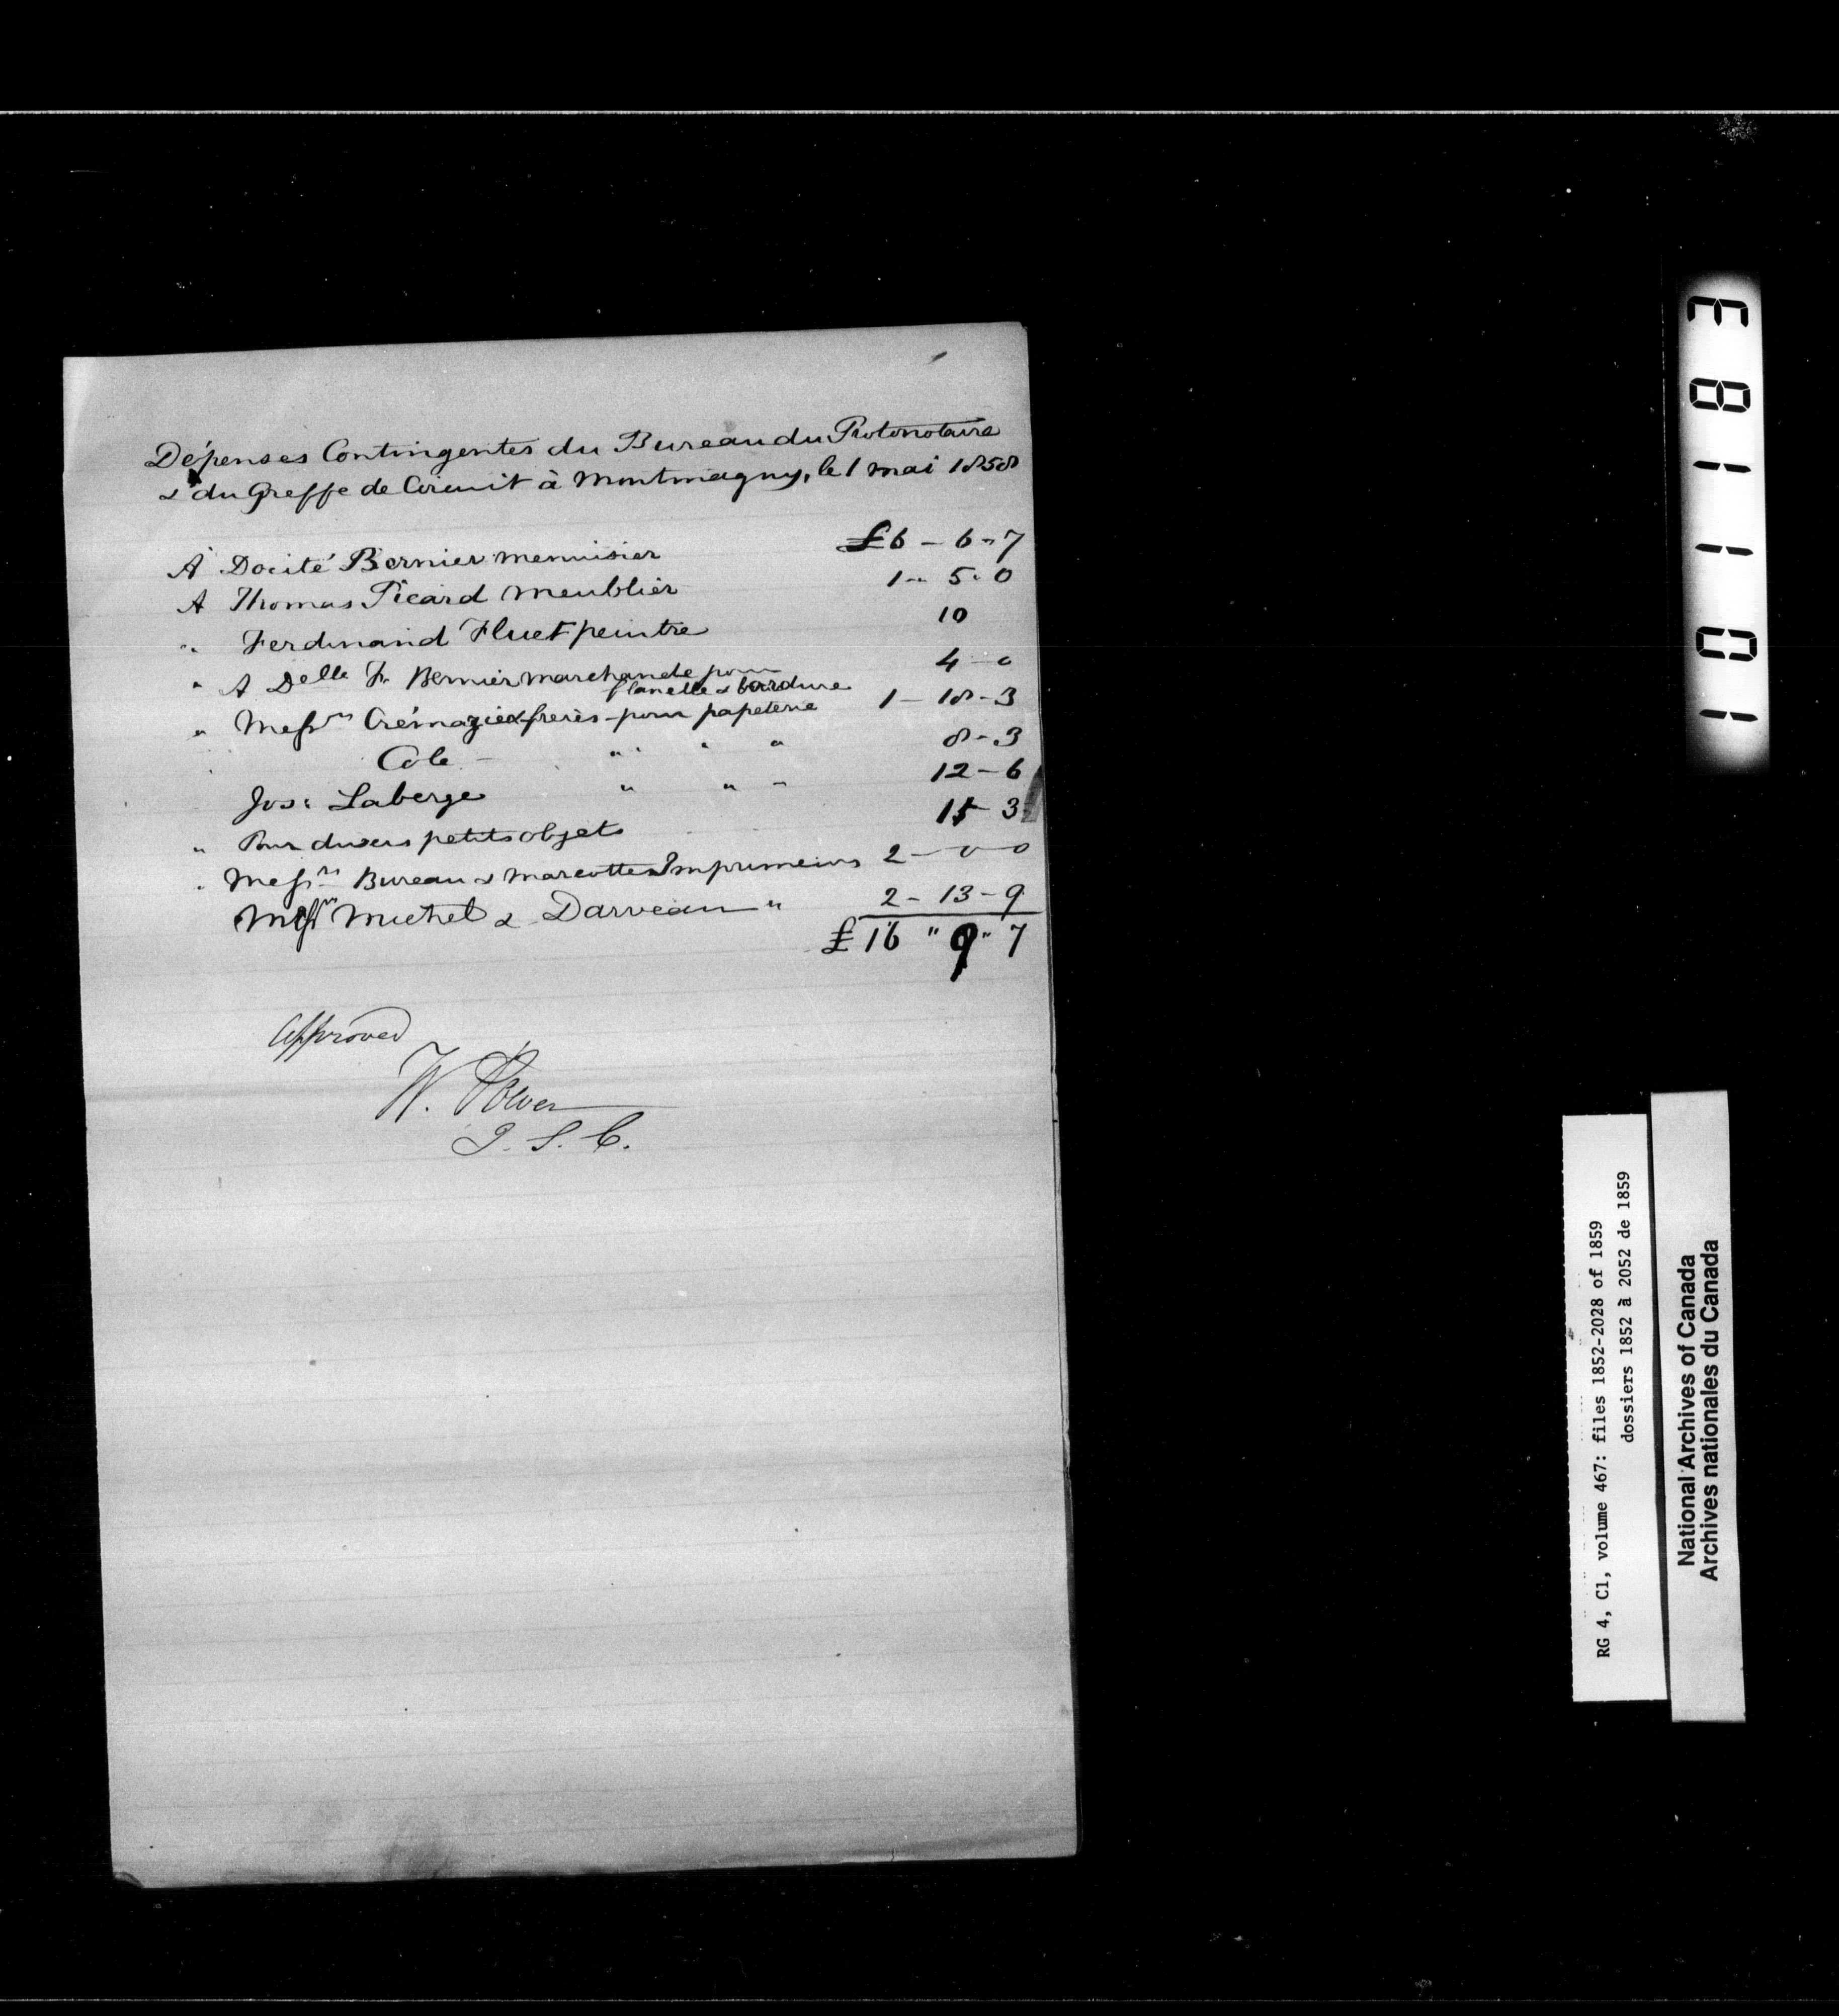 Dépenses Contingentes du Bureau du Protonotaire
& du Greffe de Circuit à Montmagny, le 1 mai 1858
A Docité Bernier menuisier £6 - 6 - 7
A Thomas Picard Meublier 1 - 5 - 0
" Ferdinand Fluet peintre 10
" A Delle F. Bernier marchande pour 4 - 0
flanelle & bordure
" Messrs Crémazie & freres - pour papeterie 1 - 18 - 3
Cole - " " " 8 - 3
Jos: Laberge " " " 12 - 6
" Pour divers petits objets 15 - 3
" Messrs Bureau & Marcotte Imprimeurs 2 - 0 - 0
Messrs Michel & Darveau " 2 - 13 - 9
£ 16 " 9 " 7
Approved
W. Power
J. S. C.
E81101
RG 4, C1, volume 467: files 1852-2028 of 1859
dossiers 1852 à 2052 de 1859
National Archives of Canada
Archives nationales du Canada